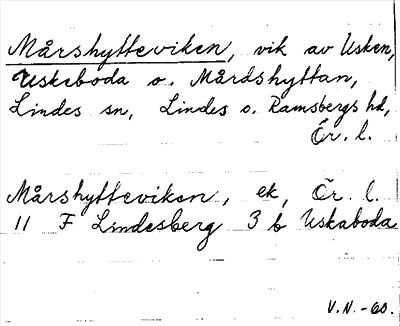 Mårshytteviken, vik av Usken,
Uskeboda o. Mårdshyttan,
Lindes sn, Lindes o. Ramsbergs hd,
Ör. l.
Mårshytteviken, ek, Ör. l.
11 F Lindesberg 3 b Uskaboda
V.N.-60.